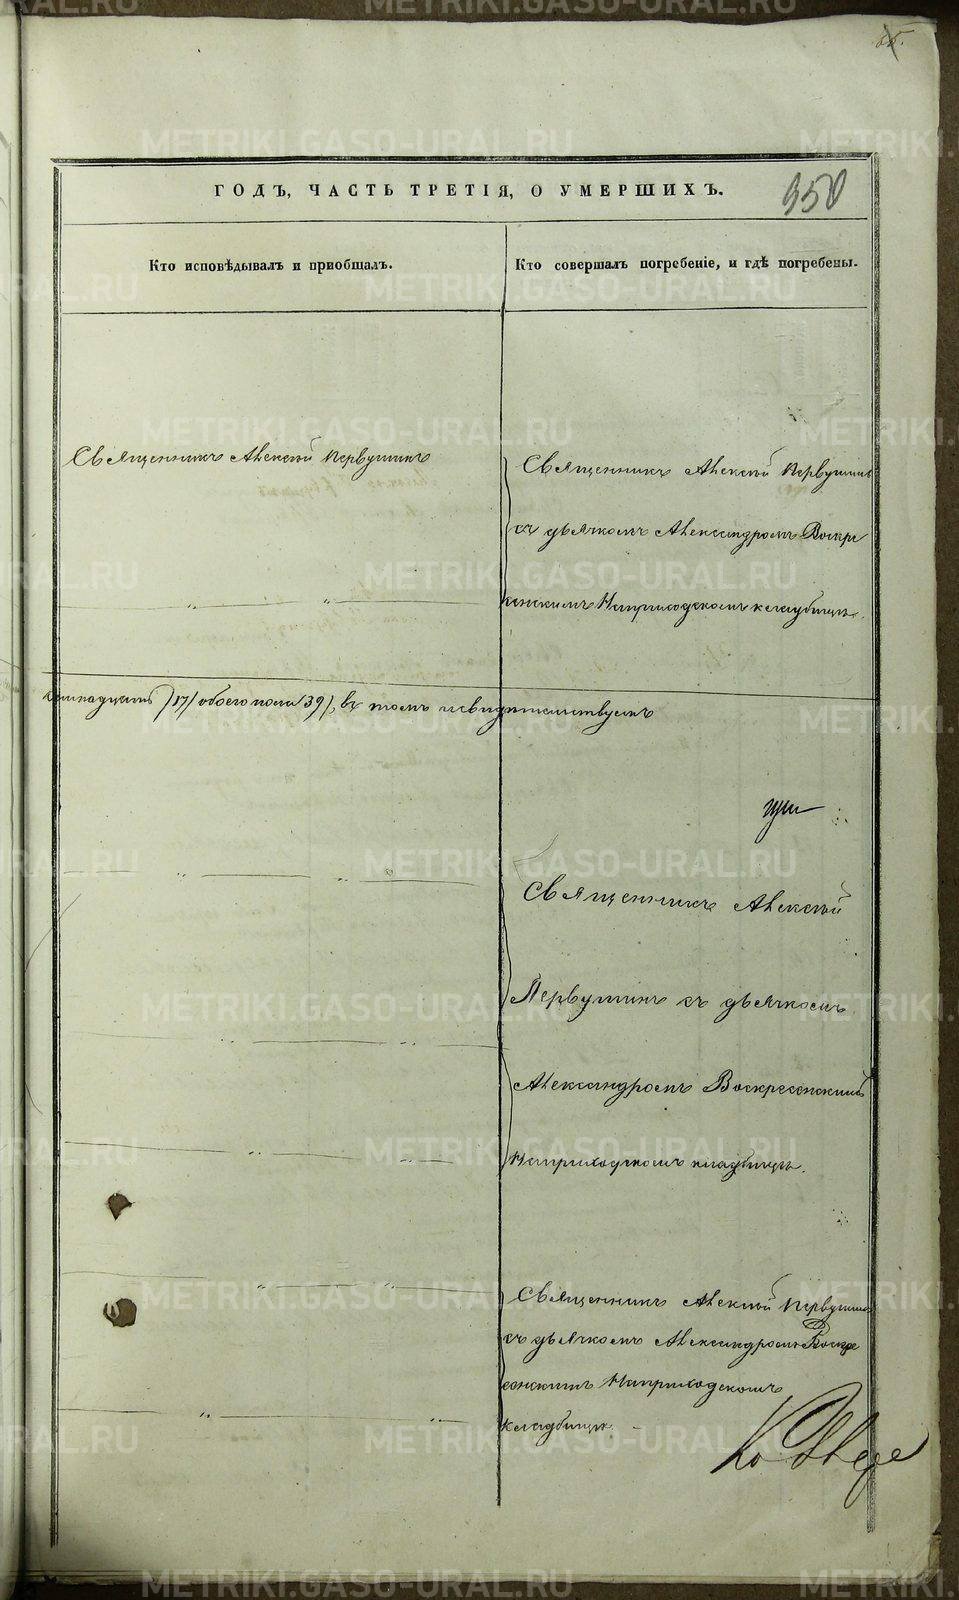 85.
ГОДЪ, ЧАСТЬ ТРЕТІЯ, О УМЕРШИХЪ.
950
Кто исповѣдывалъ и пріобщалъ.
Кто совершалъ погребеніе, и гдѣ погребены.
Священникъ Алексѣй Первушинъ
Священникъ Алексѣй Первушинъ
съ дьячкомъ Александромъ Воскре
сенскимъ На приходскомъ кладбищѣ.
/17/ обоего пола 39/, въ томъ и свидѣтельствуемъ
Священникъ Алексѣй
Первушинъ съ дьячкомъ
Александромъ Воскресенскимъ
На приходскомъ кладбищѣ.
Священникъ Алексѣй Первушинъ
съ дьячкомъ Александромъ Воскре
сенскимъ На приходскомъ
кладбищѣ.
METRIKI.GASO-URAL.RU